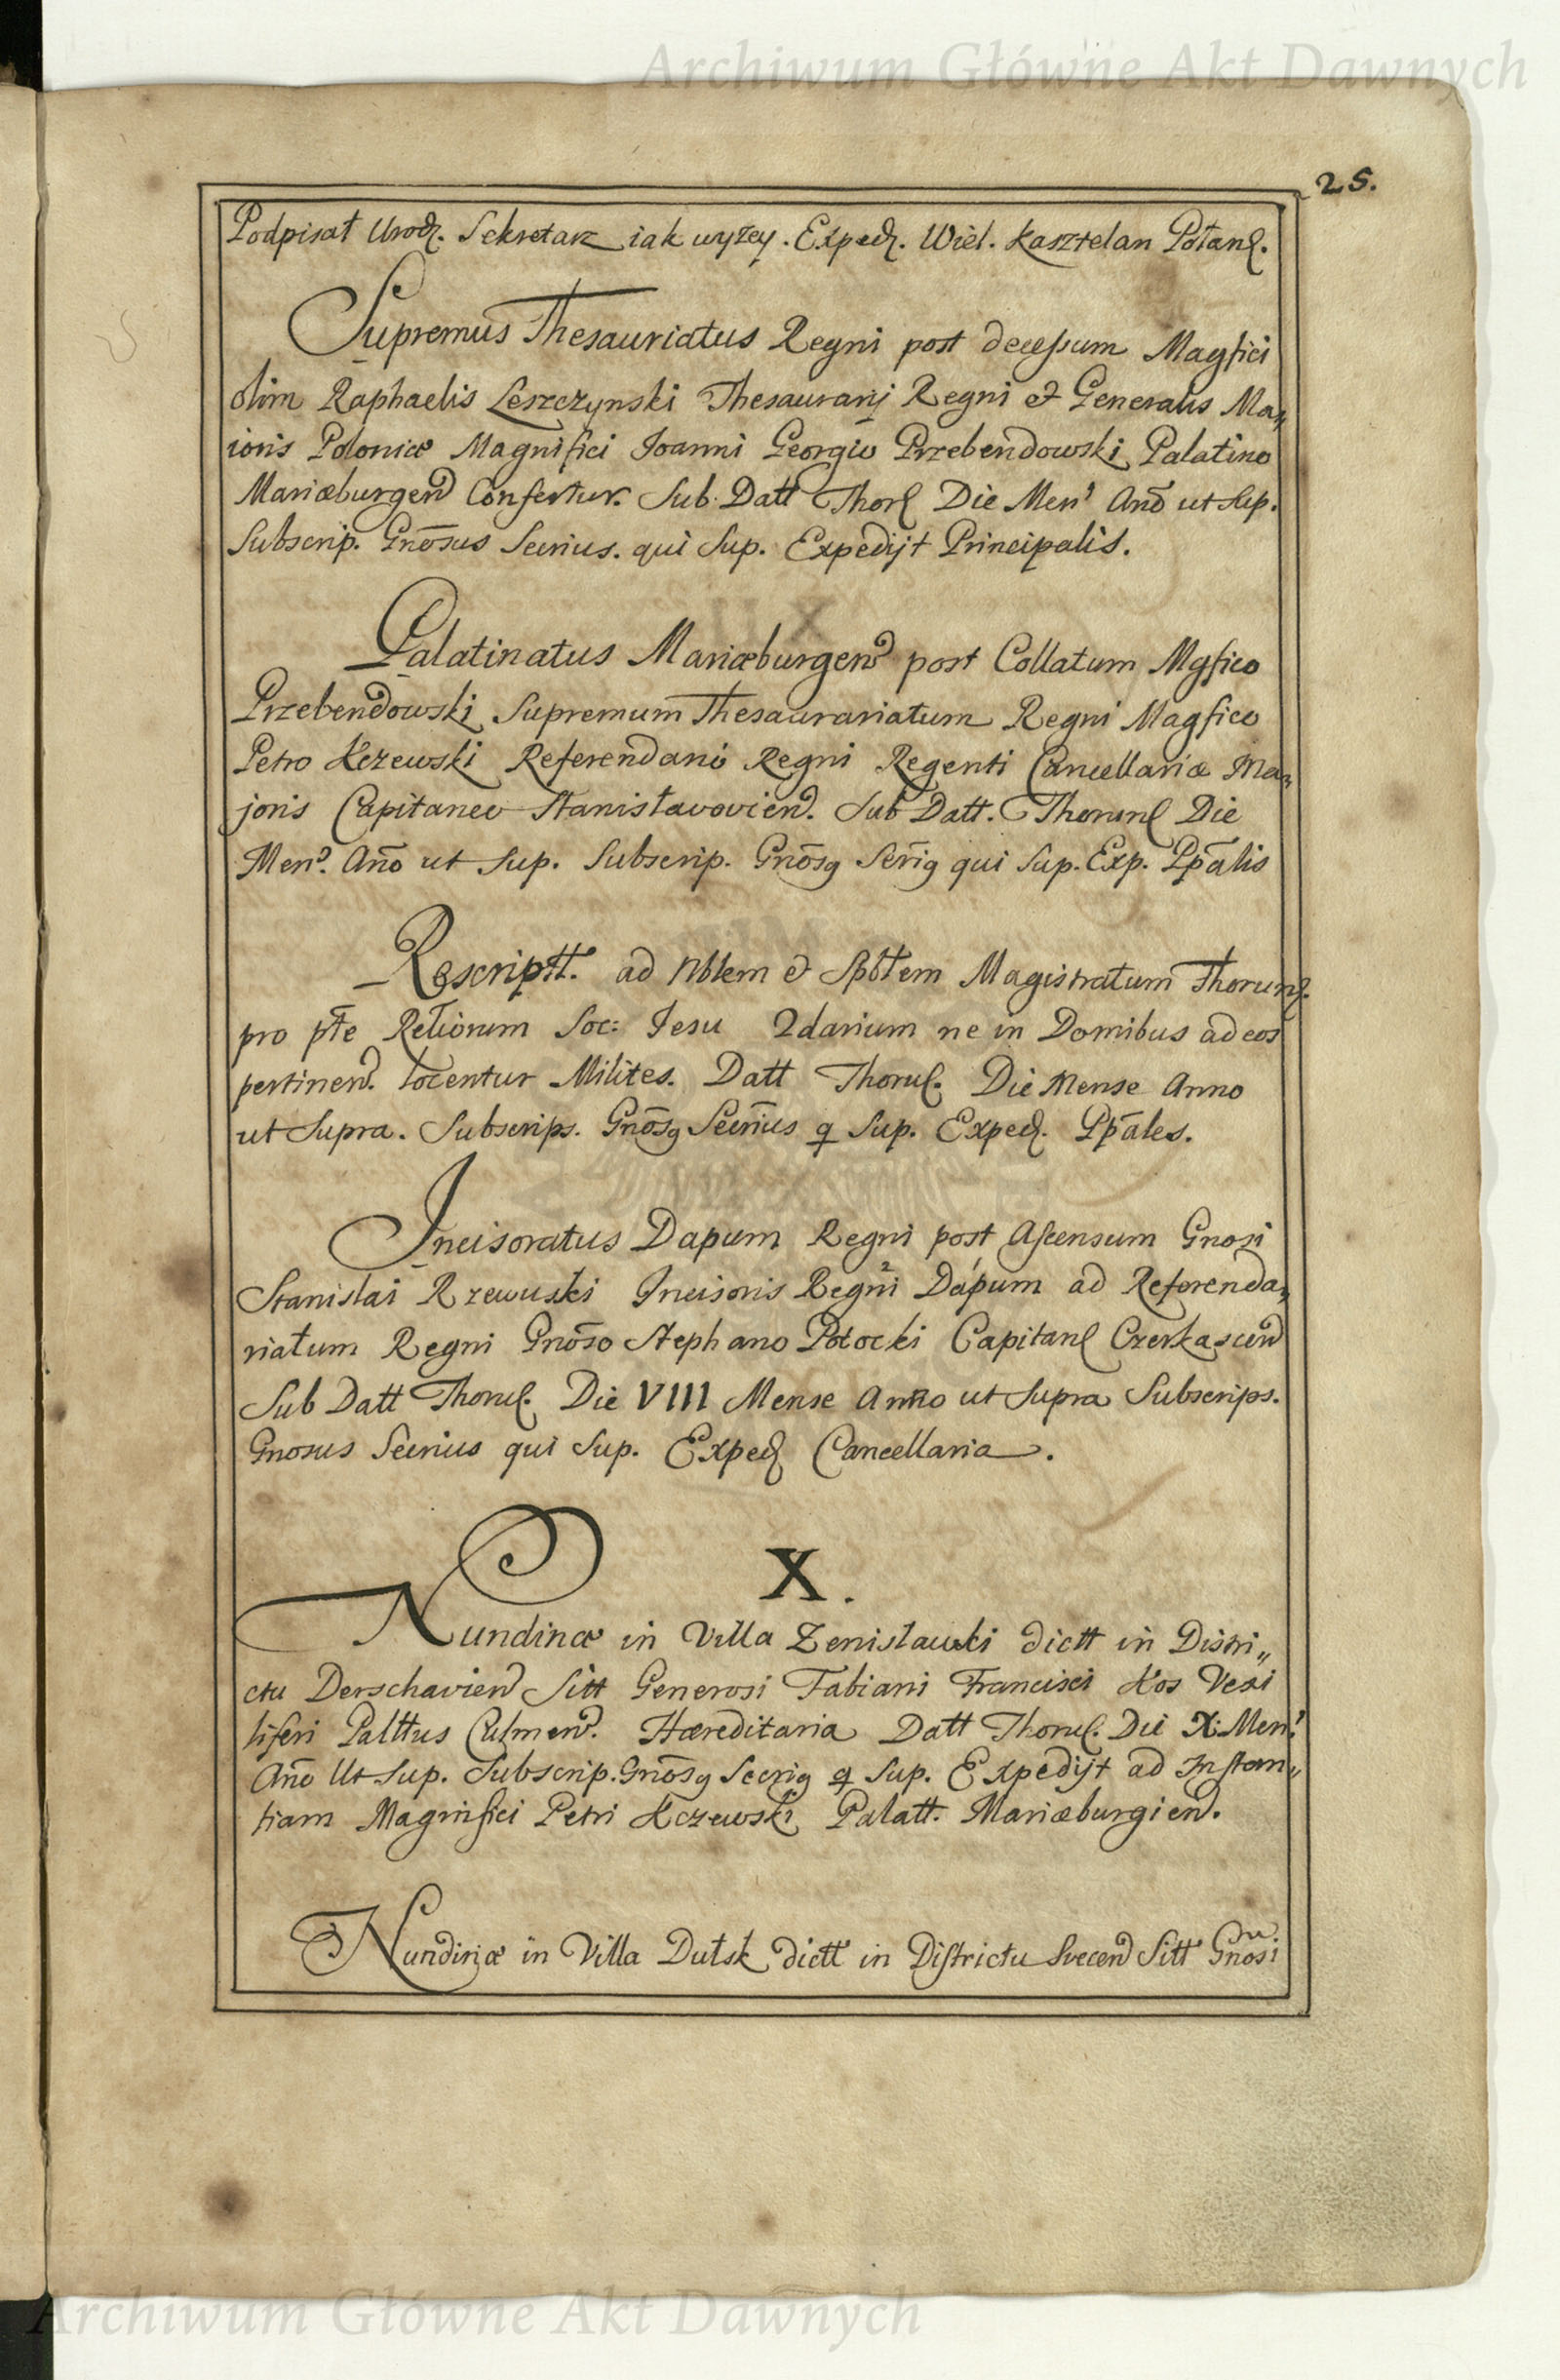 Archiwum Główne Akt Dawnych
25.
Podpisał Urodz. Sekretarz iak wyżey. Exped. Wiel. Kasztelan Połanl.
Supremus Thesauriatus Regni post decessum Magfici
olim Raphaelis Leszczynski Thesaurarij Regni et Generalis Ma„
ioris Poloniæ Magnifici Joanni Georgio Przebendowski Palatino
Mariæburgen Confertur. Sub Datt Thorl Die Men' Año ut sup.
Subscrip. Gnõsus Secrius. qui sup. Expedijt Principalis.
Palatinatus Mariæburgen post Collatum Mgfico
Przebendowski Supremum Thesaurariatum Regni Magfico
Petro Kczewski Referendario Regni Regenti Cancellariæ Ma„
joris Capitaneo Stanisławovien. Sub Datt. Thorunl Die
Men. Año ut sup. Subscrip. Gnõsq Serĩq qui sup. Exp. Ppãlis
Rescriptt. ad Nblem et Spblem Magistratum Thorunl.
pro pte Reliorum Soc: Jesu 2darium ne in Domibus ad eos
pertinen. locentur Milites. Datt Thorul. Die Mense Anno
ut supra. Subscrips. Gnõsq Secrius q sup. Exped. Ppãles.
Incisoratus Dapum Regni post Ascensum Gnosi
Stanislai Rzewuski Incisoris Regni 2 Dapum ad Referenda„
riatum Regni Gnõso Stephano Potocki Capitanl Czerkascen
Sub Datt Thorul. Die VIII Mense Anno ut supra Subscrips.
Gnosus Secrius qui sup. Exped Cancellaria.
X.
Nundinæ in Villa Zenisławki dictt in Distri„
ctu Derschavien Sitt Generosi Fabiani Francisci Kos Vexi
liferi Palttus Culmen. Hæreditaria Datt Thorul. Die X. Men.
Año Ut sup. Subscrip. Gnõsq Secriq q sup. Expedijt ad Instan„
tiam Magnifici Petri Kczewski Palatt. Mariæburgien.
Nundinæ in Villa Dulsk dictt in Districtu Svecen Sitt Gnosi
Archiwum Główne Akt Dawnych